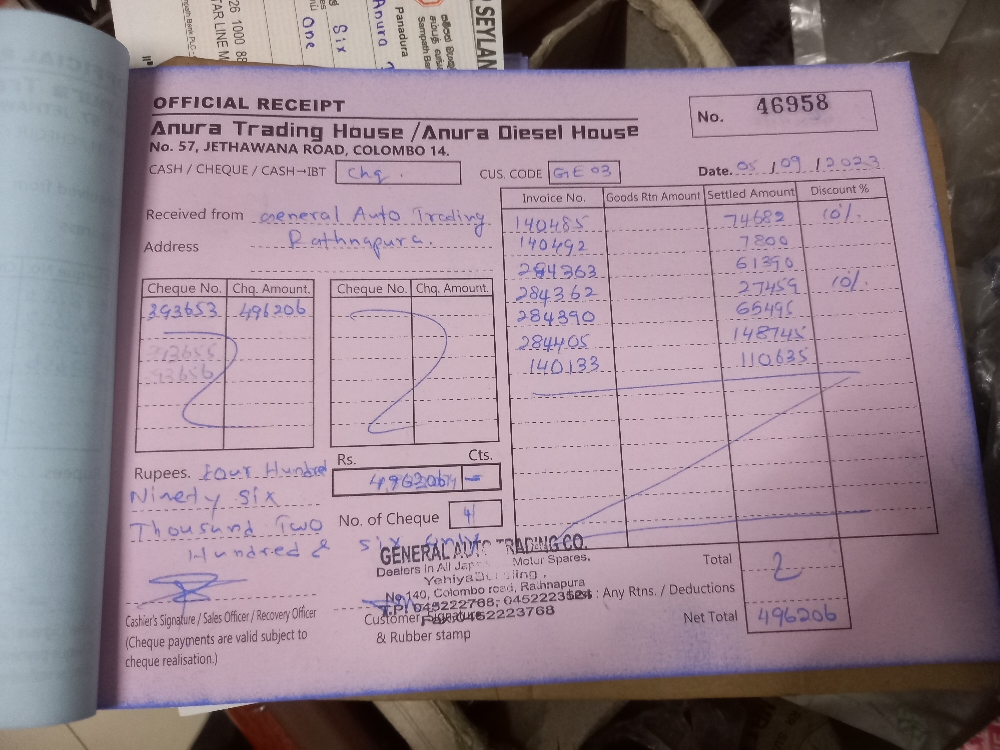 SEYLAN
Panadura
Anura
Six
One
26 1000 88
TAR LINE M
OFFICIAL RECEIPT
No. 46958
Anura Trading House /Anura Diesel House
No. 57, JETHAWANA ROAD, COLOMBO 14.
CASH / CHEQUE / CASH→IBT Chq. CUS. CODE GE 03 Date. 05 / 09 / 2023
Received from General Auto Trading
Address Rathnapura.
Invoice No. Goods Rtn Amount Settled Amount Discount %
140485 74682 10%.
140492 7800
284363 61390
284362 27459 10%.
284390 65495
284405 148745
140133 110635
Cheque No. Chq. Amount. Cheque No. Chq. Amount.
393653 496206
Rupees. Four Hundred
Ninety six
Thousand Two
Hundred & six only
Rs. Cts.
496206/ -
No. of Cheque 4
GENERAL AUTO TRADING CO.
Dealers in All Motor Spares.
No 140, Colombo road, Rathnapura
T.P: 045222768; 0452223524
Fax:0452223768
Total
: Any Rtns. / Deductions
Net Total 496206
Cashier's Signature / Sales Officer / Recovery Officer
(Cheque payments are valid subject to
cheque realisation.)
Customer Signature
& Rubber stamp